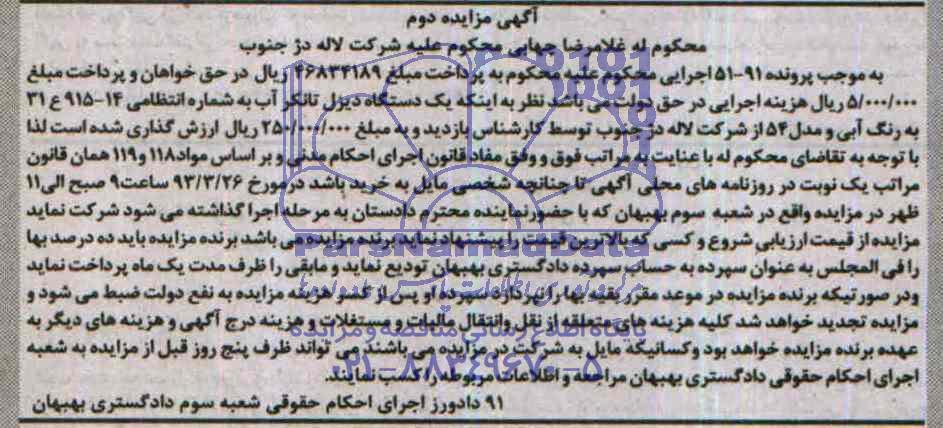 آگهی مزایده دوم
محکوم له غلامرضا جهابی محکوم علیه شرکت لاله دژ جنوب
به موجب پرونده ۹۱-۵۱ اجرایی محکوم علیه محکوم به پرداخت مبلغ ۴۶۸۳۴۱۸۹ ریال در حق خواهان و پرداخت مبلغ
۵/۰۰۰/۰۰۰ ریال هزینه اجرایی در حق دولت می باشد نظر به اینکه یک دستگاه دیزل تانکر آب به شماره انتظامی ۱۴-۹۱۵ ع ۳۱
به رنگ آبی و مدل ۵۴ از شرکت لاله دژ جنوب توسط کارشناس بازدید و به مبلغ ۲۵۰/۰۰۰/۰۰۰ ریال ارزش گذاری شده است لذا
با توجه به تقاضای محکوم له با عنایت به مراتب فوق و وفق مفاد قانون اجرای احکام مدنی و بر اساس مواد ۱۱۸ و ۱۱۹ همان قانون
مراتب یک نوبت در روزنامه های محلی آگهی تا چنانچه شخصی مایل به خرید باشد در مورخ ۹۳/۳/۲۶ ساعت ۹ صبح الی ۱۱
ظهر در مزایده واقع در شعبه سوم بهبهان که با حضور نماینده محترم دادستان به مرحله اجرا گذاشته می شود شرکت نماید
مزایده از قیمت ارزیابی شروع و کسی که بالاترین قیمت را پیشنهاد نماید برنده مزایده می باشد برنده مزایده باید ده درصد بها
را فی المجلس به عنوان سپرده به حساب سپرده دادگستری بهبهان تودیع نماید و مابقی را ظرف مدت یک ماه پرداخت نماید
ودر صورتیکه برنده مزایده در موعد مقرر بقیه بها را نپردازد سپرده او پس از کسر هزینه مزایده به نفع دولت ضبط می شود و
مزایده تجدید خواهد شد کلیه هزینه های متعلقه از نقل وانتقال مالیات و مستغلات و هزینه درج آگهی و هزینه های دیگر به
عهده برنده مزایده خواهد بود وکسانیکه مایل به شرکت در مزایده می باشند می تواند ظرف پنج روز قبل از مزایده به شعبه
اجرای احکام حقوقی دادگستری بهبهان مراجعه و اطلاعات مربوطه را کسب نمایند.
۹۱ دادورز اجرای احکام حقوقی شعبه سوم دادگستری بهبهان
ParsNamadData
پایگاه اطلاع رسانی مناقصه و مزایده
۰۲۱-۸۸۳۴۹۶۷۰-۵